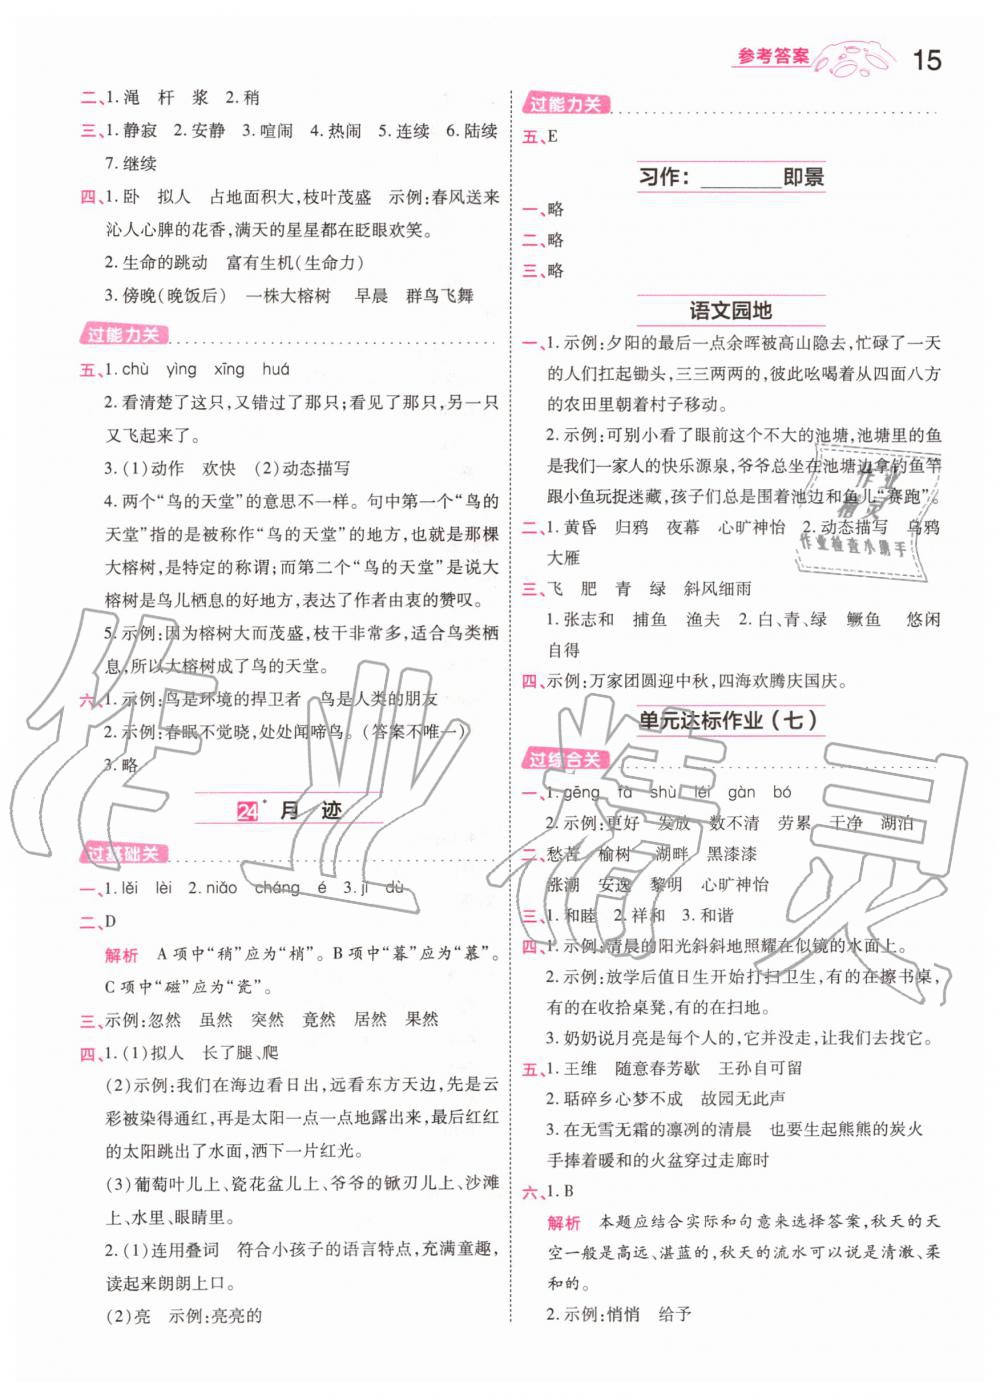 参考答案 15
二、1. 绳 杆 浆 2. 稍
三、1. 静寂 2. 安静 3. 喧闹 4. 热闹 5. 连续 6. 陆续
7. 继续
四、1. 卧 拟人 占地面积大,枝叶茂盛 示例:春风送来
沁人心脾的花香,满天的星星都在眨眼欢笑。
2. 生命的跳动 富有生机(生命力)
3. 傍晚(晚饭后) 一株大榕树 早晨 群鸟飞舞
过能力关
五、1. chù yìng xīng huá
2. 看清楚了这只,又错过了那只;看见了那只,另一只
又飞起来了。
3. (1)动作 欢快 (2)动态描写
4. 两个“鸟的天堂”的意思不一样。句中第一个“鸟的
天堂”指的是被称作“鸟的天堂”的地方,也就是那棵
大榕树,是特定的称谓;而第二个“鸟的天堂”是说大
榕树是鸟儿栖息的好地方,表达了作者由衷的赞叹。
5. 示例:因为榕树大而茂盛,枝干非常多,适合鸟类栖
息,所以大榕树成了鸟的天堂。
六、1. 示例:鸟是环境的捍卫者 鸟是人类的朋友
2. 示例:春眠不觉晓,处处闻啼鸟。(答案不唯一)
3. 略
24* 月 迹
过基础关
一、1. lěi lèi 2. niǎo cháng é 3. jī dù
二、D
解析 A项中“梢”应为“悄”。B项中“暮”应为“慕”。
C项中“磁”应为“瓷”。
三、示例:忽然 虽然 突然 竟然 居然 果然
四、1. (1)拟人 长了腿、爬
(2)示例:我们在海边看日出,远看东方天边,先是云
彩被染得通红,再是太阳一点一点地露出来,最后红红
的太阳跳出了水面,洒下一片红光。
(3)葡萄叶儿上、瓷花盆儿上、爷爷的锨刃儿上、沙滩
上、水里、眼睛里。
2. (1)连用叠词 符合小孩子的语言特点,充满童趣,
读起来朗朗上口。
(2)亮 示例:亮亮的
过能力关
五、E
习作:________即景
一、略
二、略
三、略
语文园地
一、1. 示例:夕阳的最后一点余晖被高山隐去,忙碌了一天
的人们扛起锄头,三三两两的,彼此吆喝着从四面八方
的农田里朝着村子移动。
2. 示例:可别小看了眼前这个不大的池塘,池塘里的鱼
是我们一家人的快乐源泉,爷爷总坐在池塘边拿钓鱼竿
跟小鱼玩捉迷藏,孩子们总是围着池边和鱼儿“赛跑”。
二、1. 黄昏 归鸦 夜幕 心旷神怡 2. 动态描写 乌鸦
大雁
三、飞 肥 青 绿 斜风细雨
1. 张志和 捕鱼 渔夫 2. 白、青、绿 鳜鱼 悠闲
自得
四、示例:万家团圆迎中秋,四海欢腾庆国庆。
单元达标作业(七)
过综合关
一、1. gēng fà shù léi gàn bó
2. 示例:更好 发放 数不清 劳累 干净 湖泊
二、愁苦 榆树 湖畔 黑漆漆
涨潮 安逸 黎明 心旷神怡
三、1. 和睦 2. 祥和 3. 和谐
四、1. 示例:清晨的阳光斜斜地照耀在似镜的水面上。
2. 示例:放学后值日生开始打扫卫生,有的在擦书桌,
有的在收拾桌凳,有的在扫地。
3. 奶奶说月亮是每个人的,它并没走,让我们去找它。
五、1. 王维 随意春芳歇 王孙自可留
2. 聒碎乡心梦不成 故园无此声
3. 在无雪无霜的凛冽的清晨 也要生起熊熊的炭火
手捧着暖和的火盆穿过走廊时
六、1. B
解析 本题应结合实际和句意来选择答案,秋天的天
空一般是高远、湛蓝的,秋天的流水可以说是清澈、柔
和的。
2. 示例:悄悄 给予
作业
精灵
作业检查小助手
作业精灵